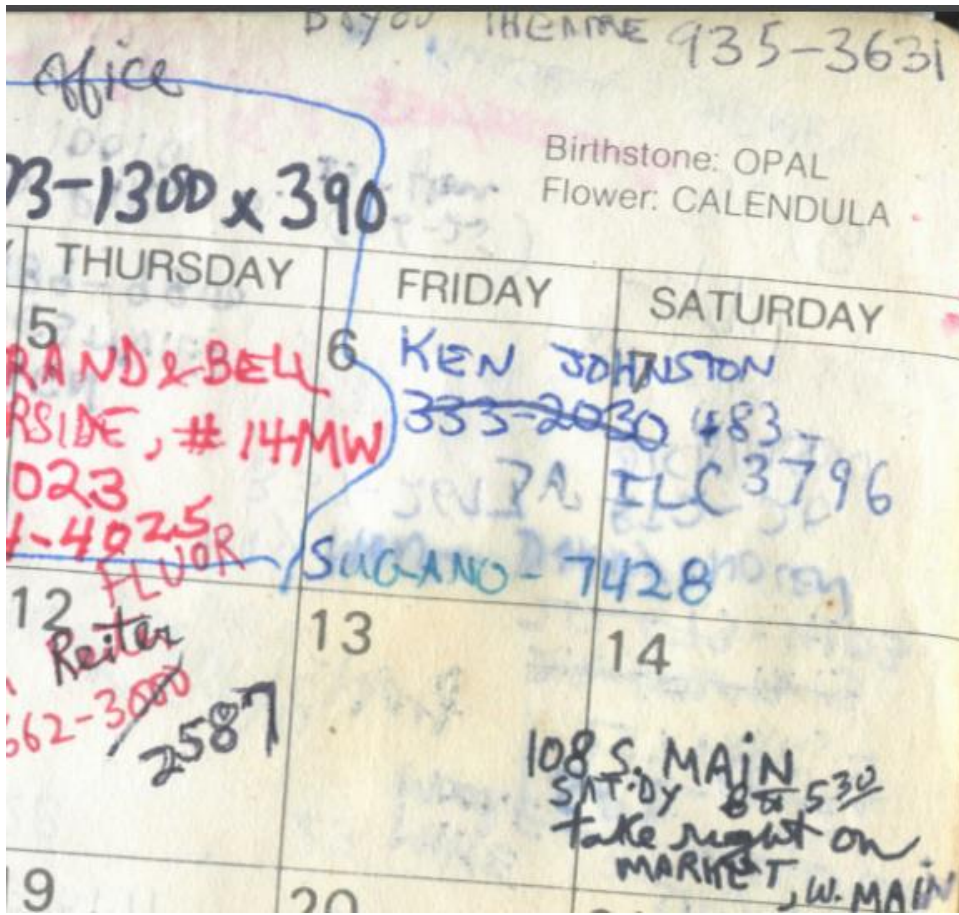 BAYOU THEATRE 935-3631
office
3-1300 x 390
Birthstone: OPAL
Flower: CALENDULA
THURSDAY FRIDAY SATURDAY
5 6 7
RAND & BELL
RSIDE, # 14MW
023
-4025
FLUOR
KEN JOHNSTON
333-2030 483-
ILC 3796
SUGANO - 7428
12 13 14
Reiter
662-3000
2587
108 S. MAIN
SAT.DY 8 530
take right on
MARKET, W. MAIN
9 20